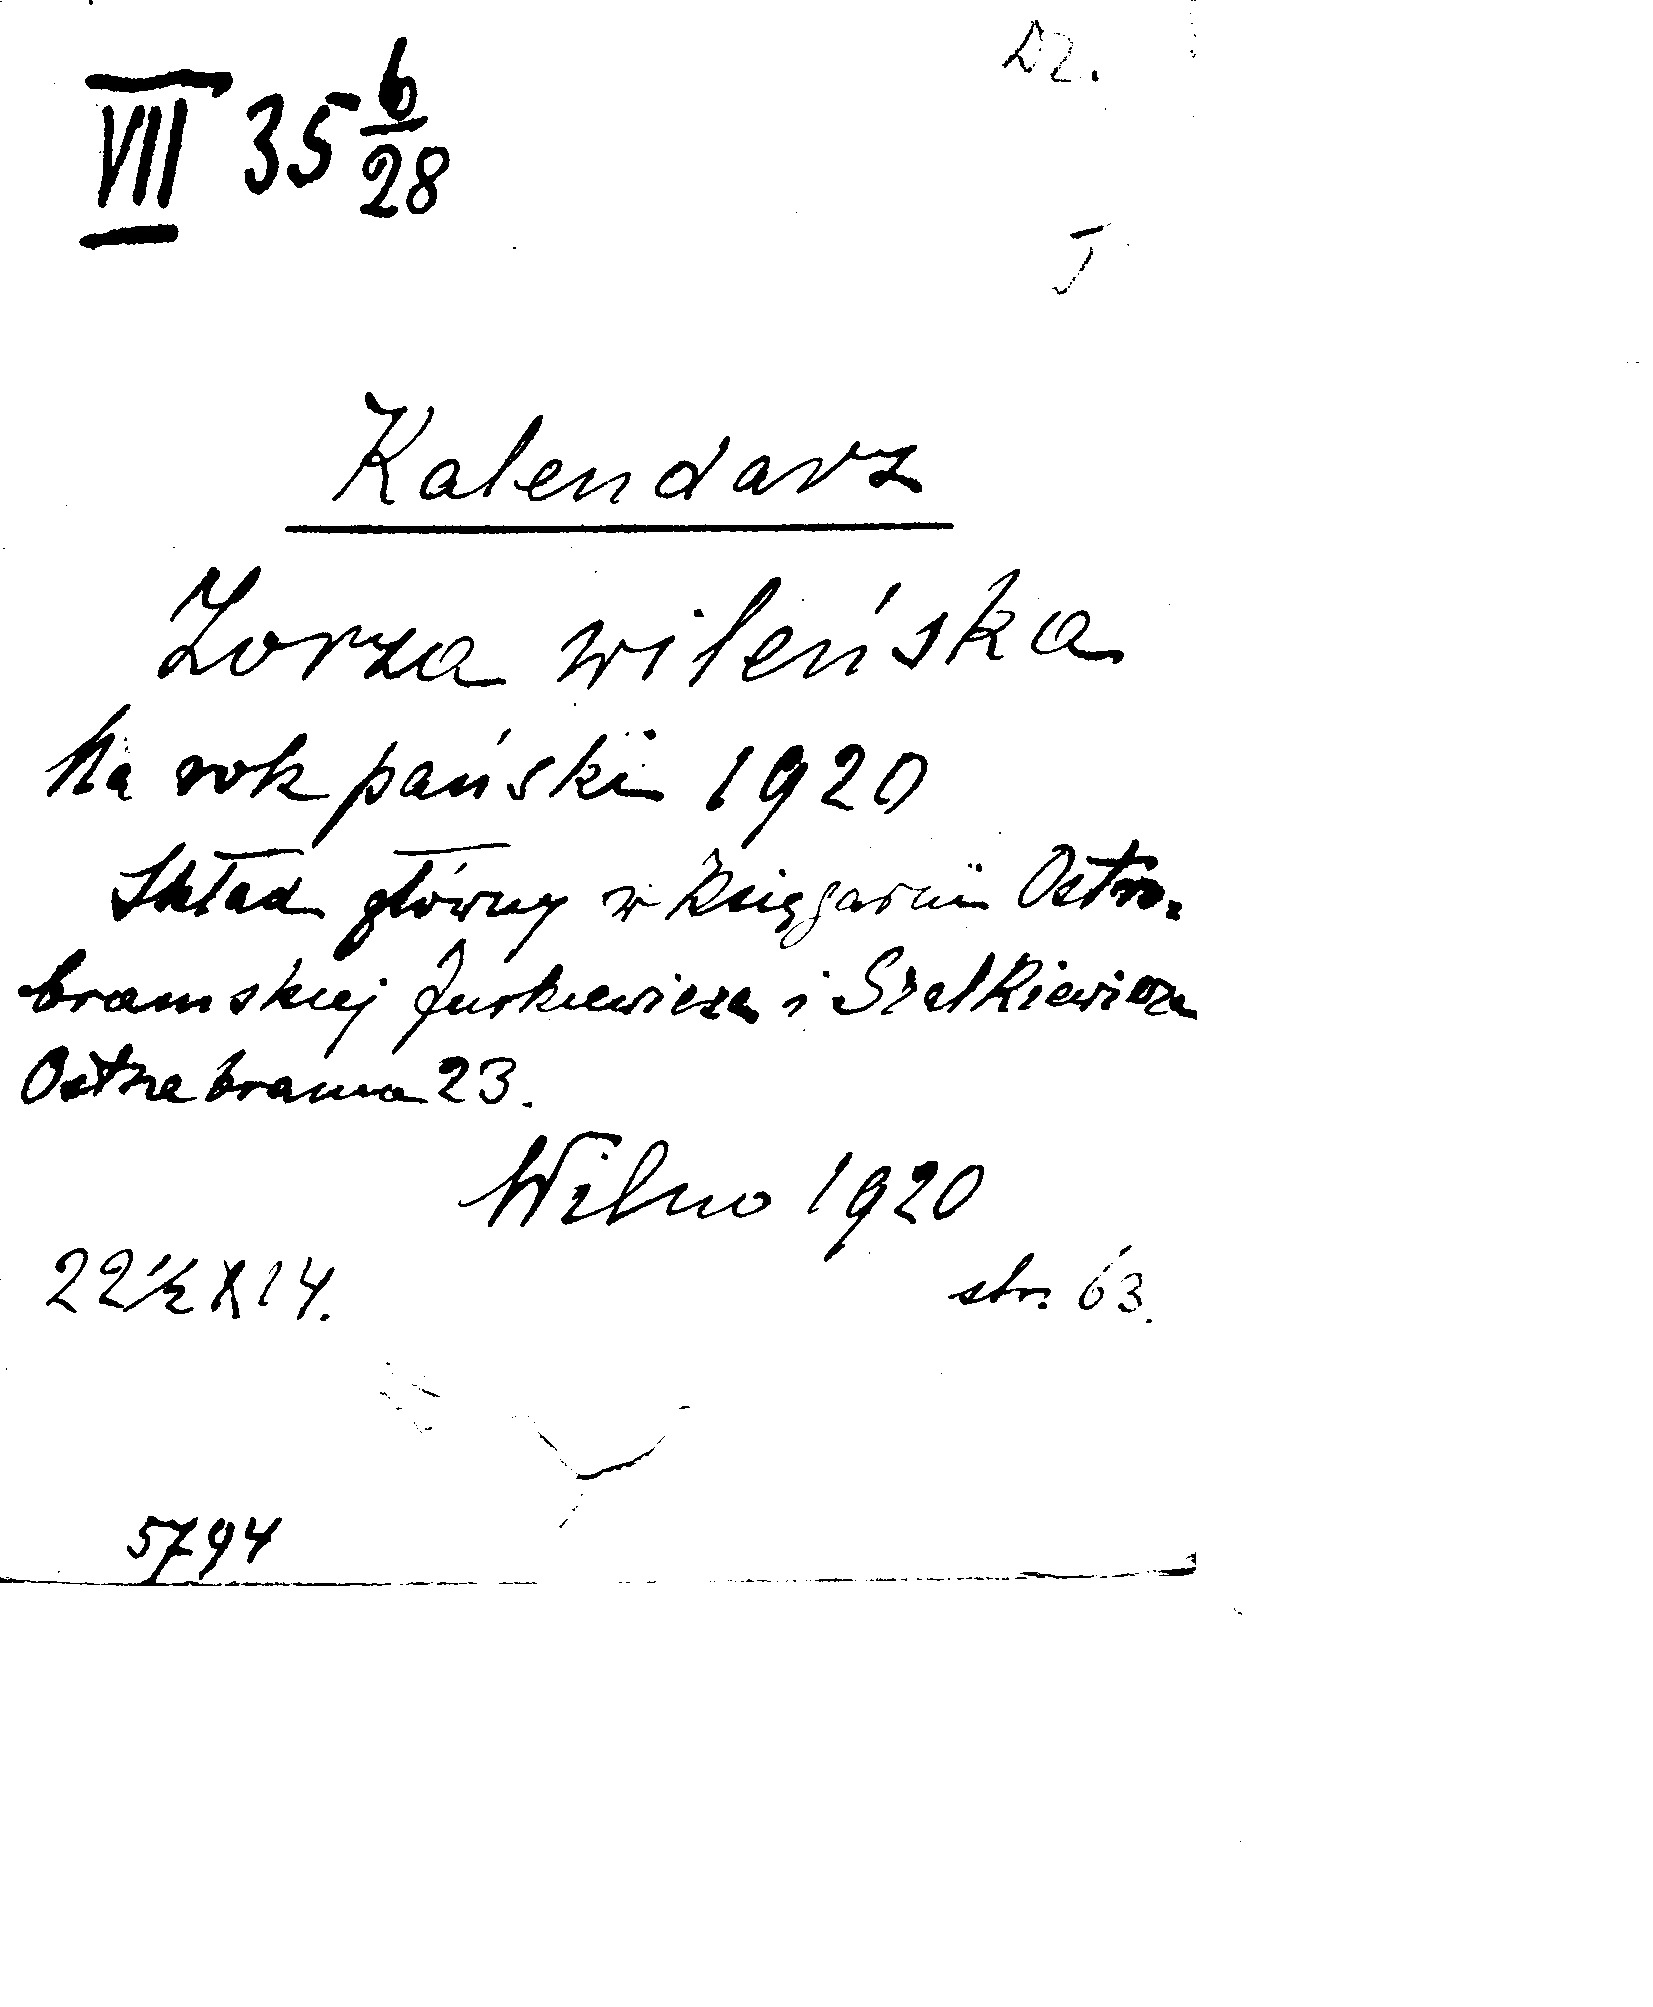 Dz.
VII 35 6/28
J
Kalendarz
Zorza wileńska
Na rok pański 1920
Skład główny w Księgarni Ostro-
bramskiej Jurkiewicza i Szalkiewicza
Ostra brama 23.
Wilno 1920
22 1/2 X 14. str. 63.
5794